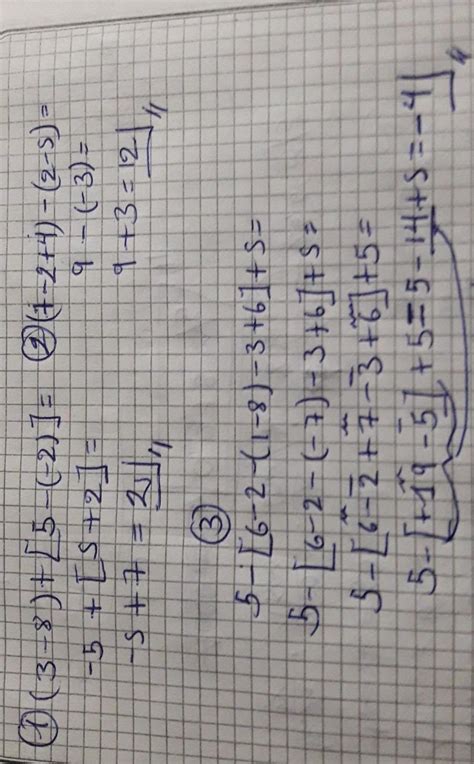 ① (3-8)+[5-(-2)]=
-5+[5+2]=
-5+7=2
② (7-2+4)-(2-5)=
9-(-3)=
9+3=12
③
5-[6-2-(1-8)-3+6]+5=
5-[6-2-(-7)-3+6]+5=
5-[6-2+7-3+6]+5=
5-[+19-5]+5=5-14+5=-4